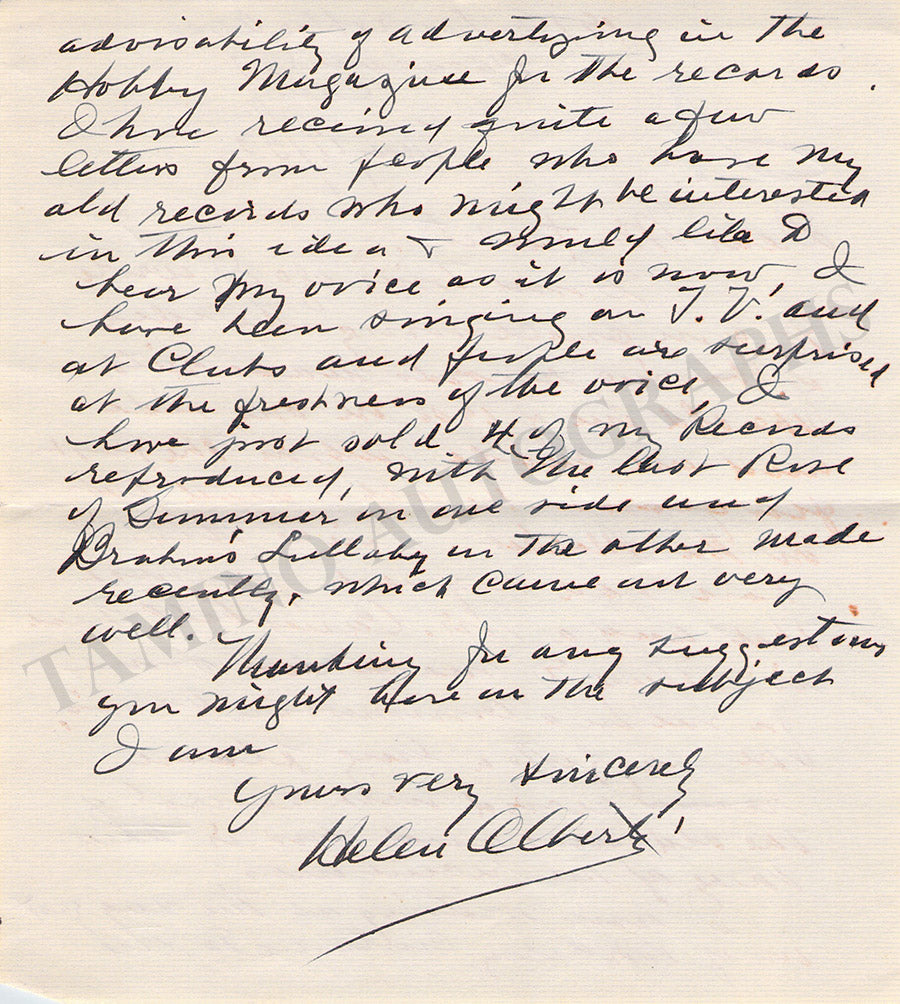 advisability of advertizing in the
Hobby Magazine for the records.
I have received quite a few
letters from people who have my
old records who might be interested
in this idea & would like to
hear my voice as it is now, I
have been singing on T.V. and
at Clubs and people are surprised
at the freshness of the voice, I
have just sold 4 of my Records
reproduced, with The Last Rose
of Summer on one side and
Brahms Lullaby on the other made
recently. which came out very
well.
Thanking for any suggestions
you might have on the subject
I am
Yours very sincerely
Helen Alberti
TAMINO AUTOGRAPHS